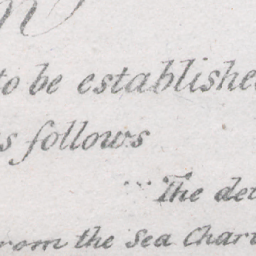 to be establishe
s follows
The det
rom the Sea Chart